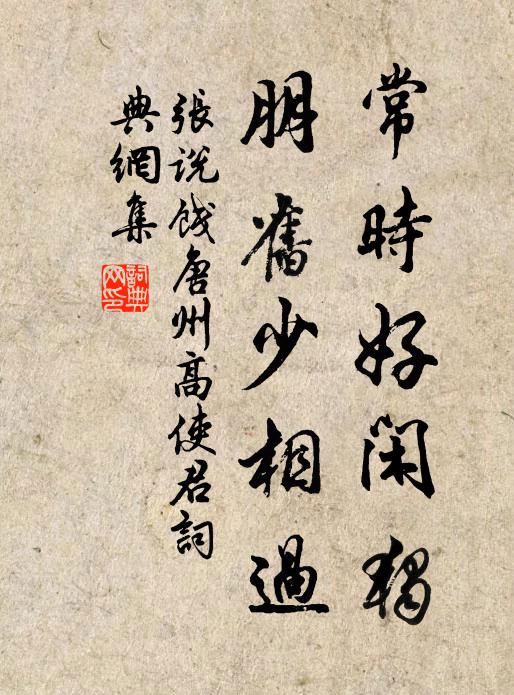 常時好閑獨
朋舊少相過
張說餞唐州高使君詞
典網集
詞典網印